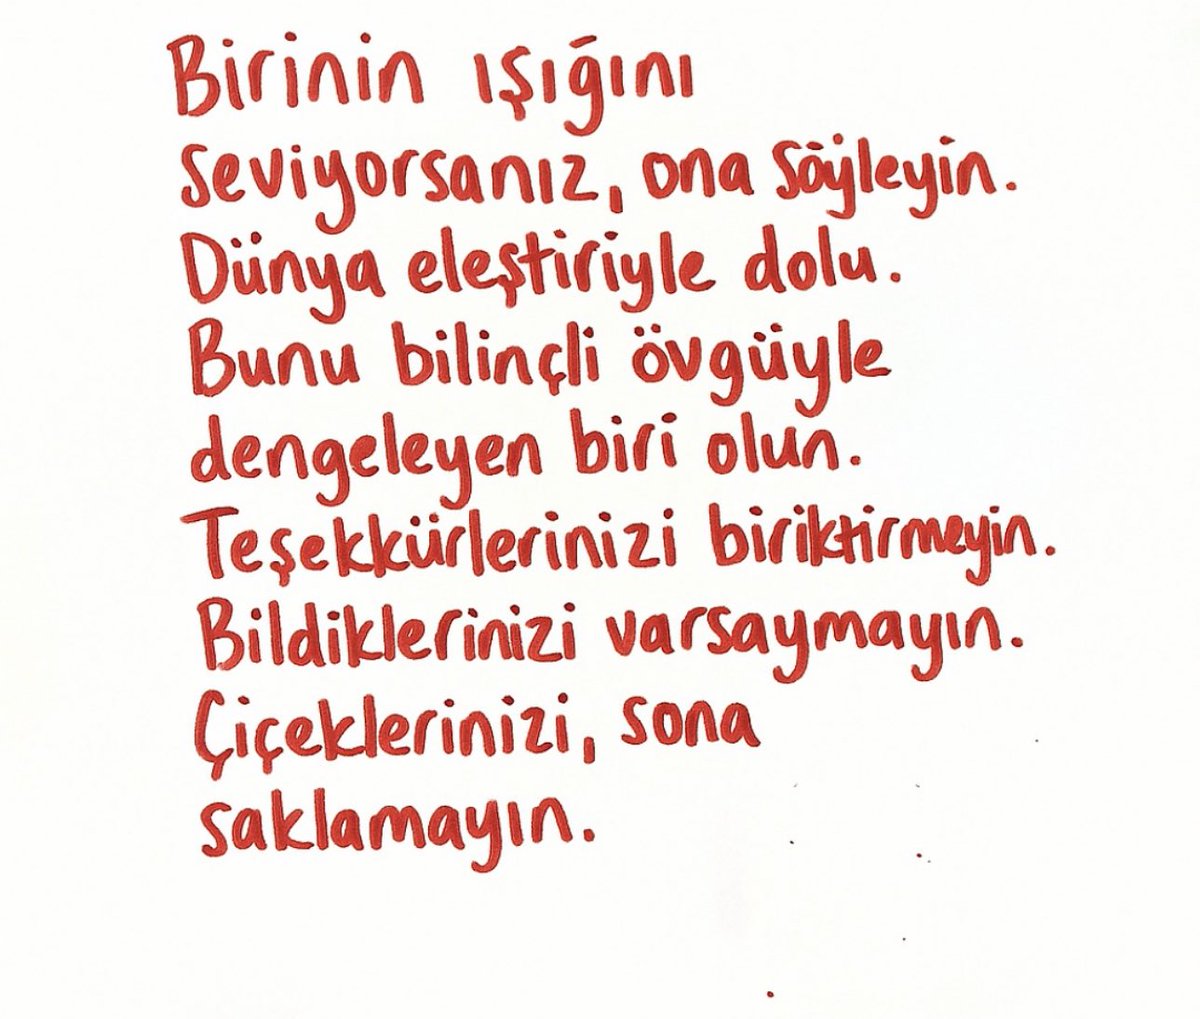 Birinin ışığını
seviyorsanız, ona söyleyin.
Dünya eleştiriyle dolu.
Bunu bilinçli övgüyle
dengeleyen biri olun.
Teşekkürlerinizi biriktirmeyin.
Bildiklerinizi varsaymayın.
Çiçeklerinizi, sona
saklamayın.